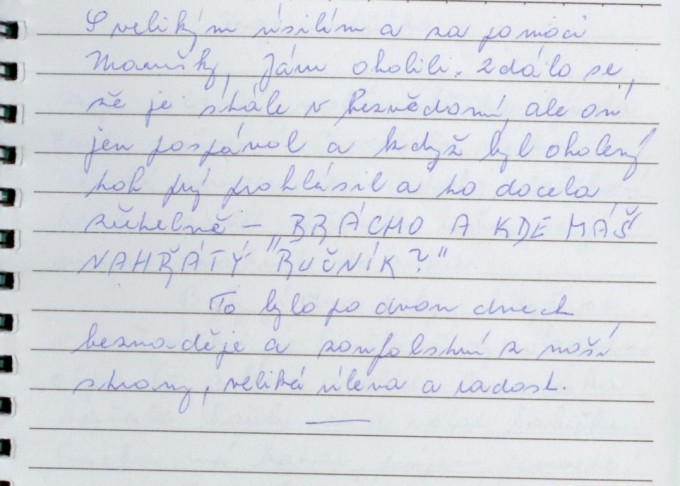 S velikým úsilím a za pomoci
Marušky, Járu oholili. Zdálo se,
že je stále v bezvědomí, ale on
jen pospával a když byl oholený
tak prý prohlásil a to docela
zřetelně – „BRÁCHO A KDE MÁŠ
NAHŘÁTÝ RUČNÍK?"
To bylo po dvou dnech
beznaděje a zoufalství z naší
strany, veliká úleva a radost.